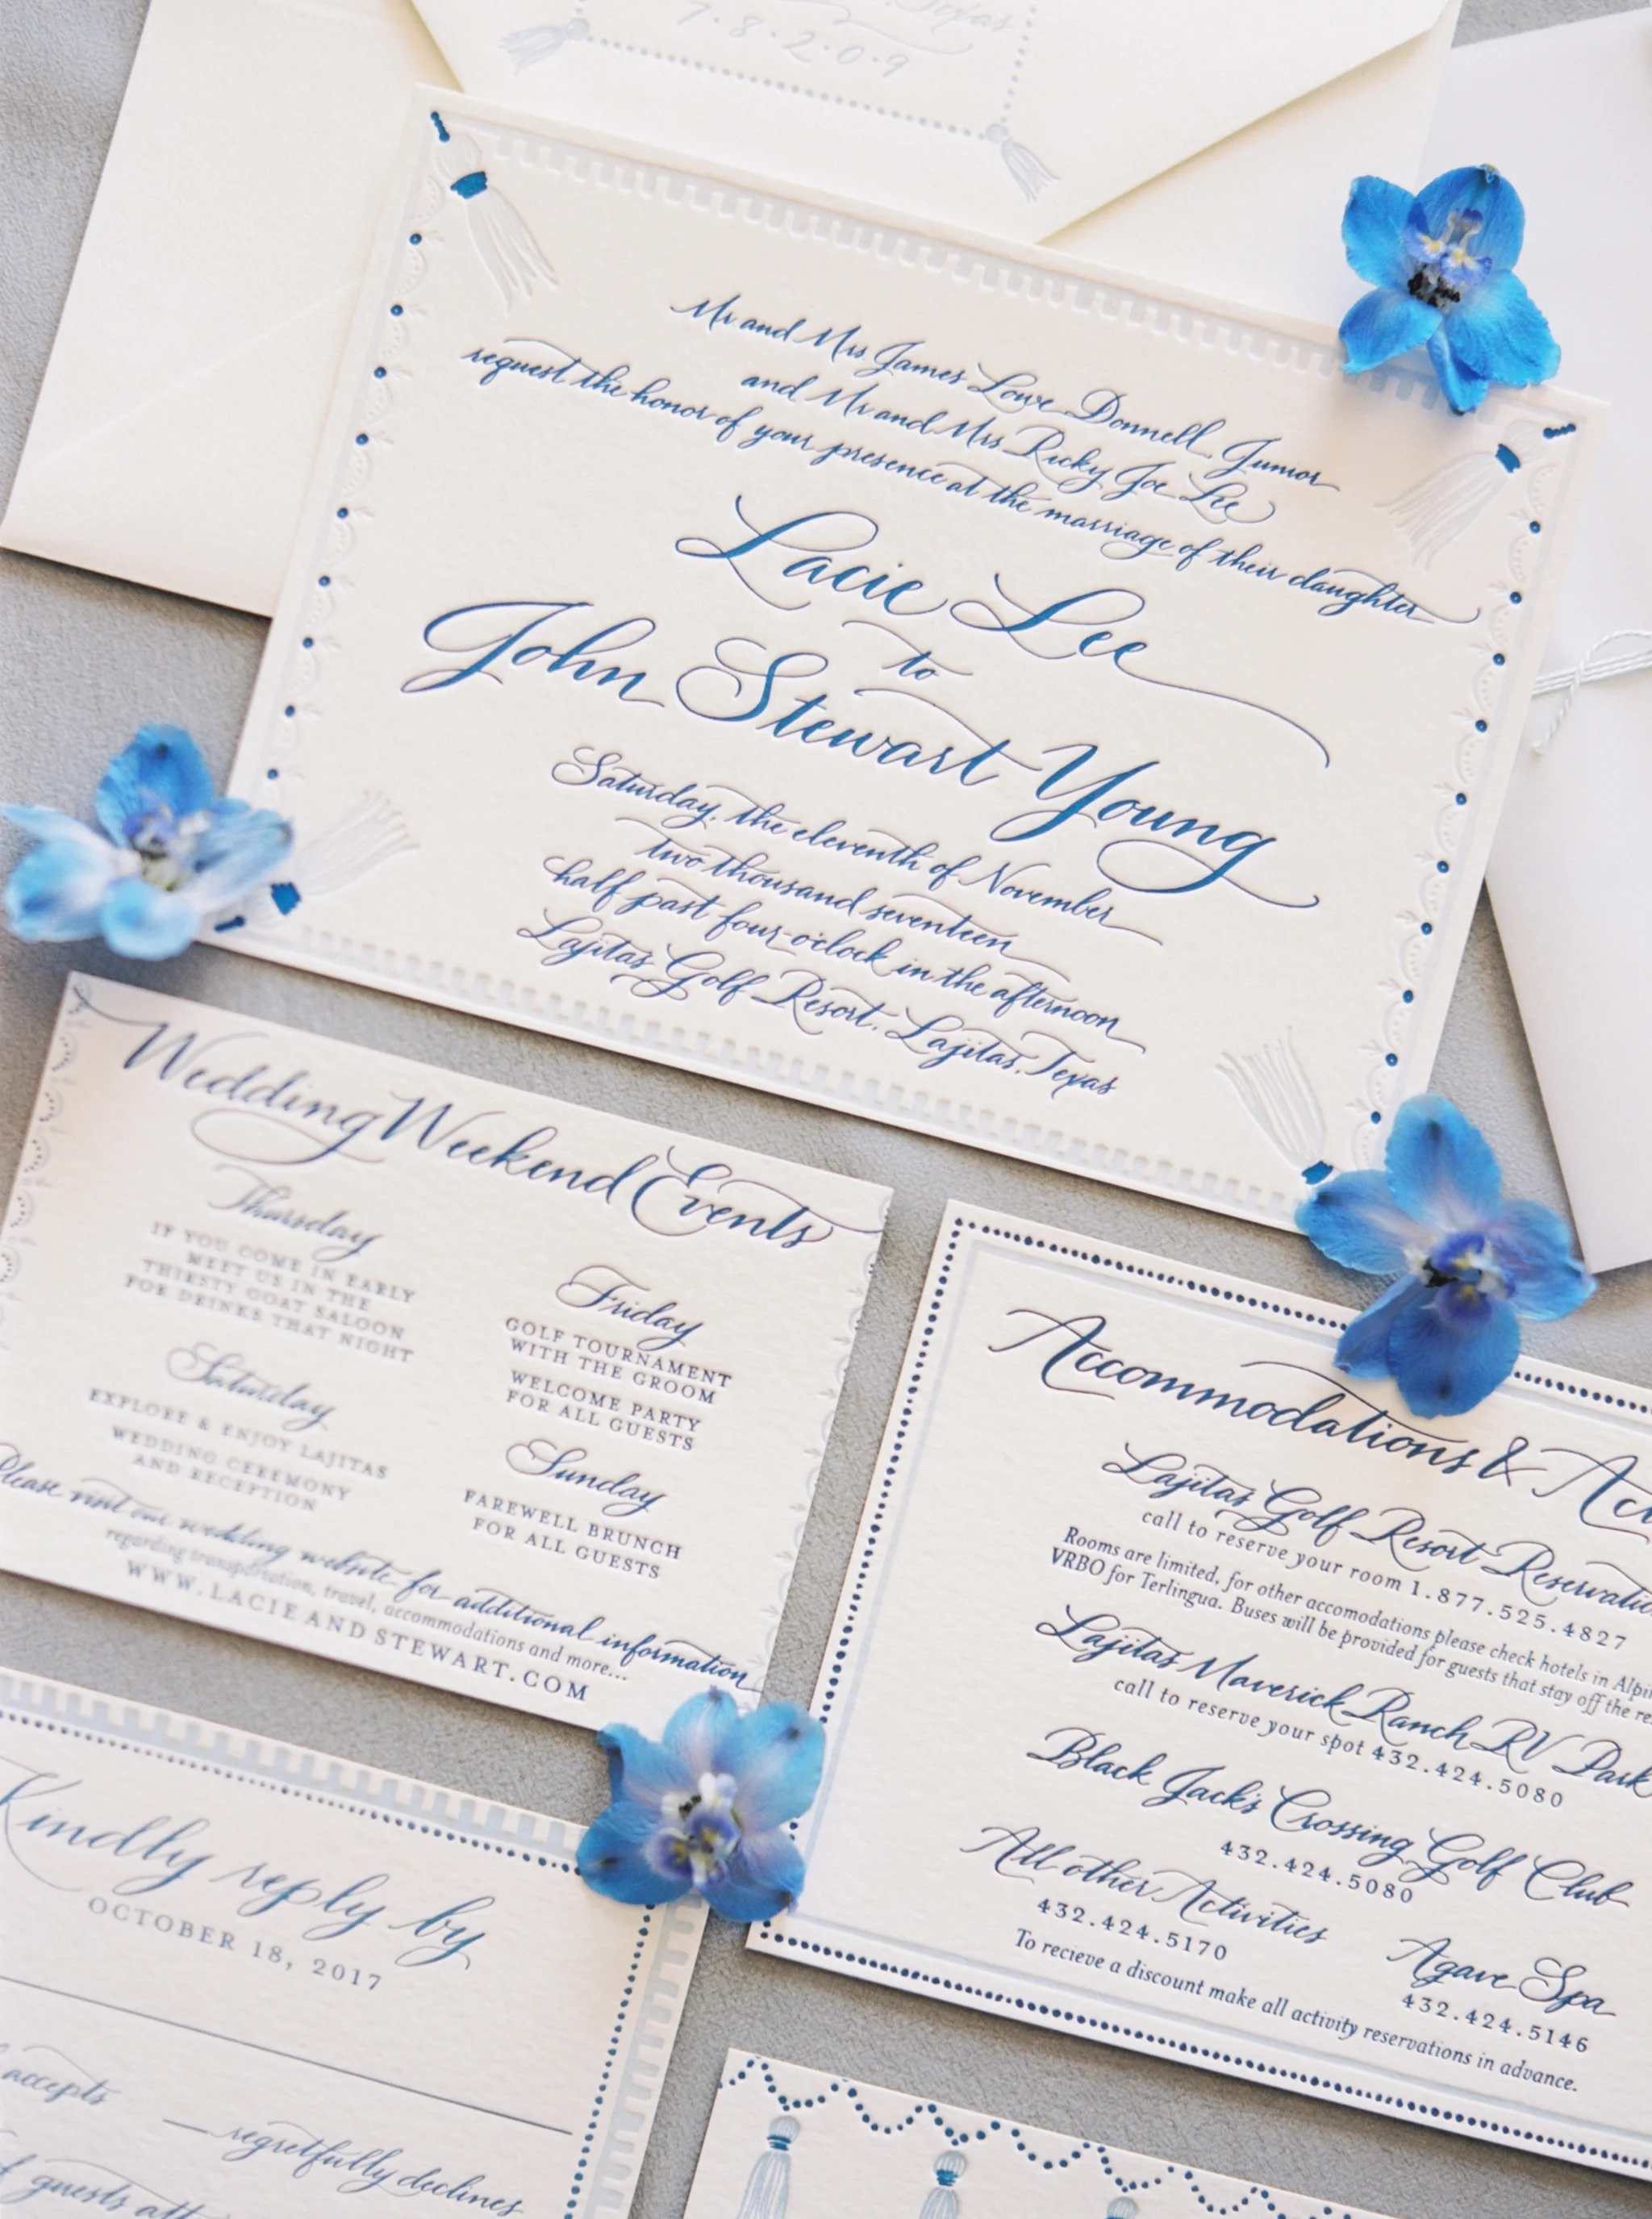 Texas
7·8·2·0·9
Mr. and Mrs. James Lowe Donnell, Junior
and Mr. and Mrs. Ricky Joe Lee
request the honor of your presence at the marriage of their daughter
Lacie Lee
to
John Stewart Young
Saturday, the eleventh of November
two thousand seventeen
half past four o'clock in the afternoon
Lajitas Golf Resort, Lajitas, Texas
Wedding Weekend Events
Thursday
IF YOU COME IN EARLY
MEET US IN THE
THIRSTY GOAT SALOON
FOR DRINKS THAT NIGHT
Friday
GOLF TOURNAMENT
WITH THE GROOM
WELCOME PARTY
FOR ALL GUESTS
Saturday
EXPLORE & ENJOY LAJITAS
WEDDING CEREMONY
AND RECEPTION
Sunday
FAREWELL BRUNCH
FOR ALL GUESTS
Please visit our wedding website for additional information
regarding transportation, travel, accommodations and more...
WWW.LACIEANDSTEWART.COM
Accommodations &
Lajitas Golf Resort
call to reserve your room 1.877.525.4827
Rooms are limited, for other accomodations please check hotels in
VRBO for Terlingua. Buses will be provided for guests that stay off the
Lajitas Maverick Ranch RV Park
call to reserve your spot 432.424.5080
Black Jack's Crossing Golf Club
432.424.5080
All other Activities
432.424.5170
Agave Spa
432.424.5146
To recieve a discount make all activity reservations in advance.
Kindly reply by
OCTOBER 18, 2017
accepts
regretfully declines
guests